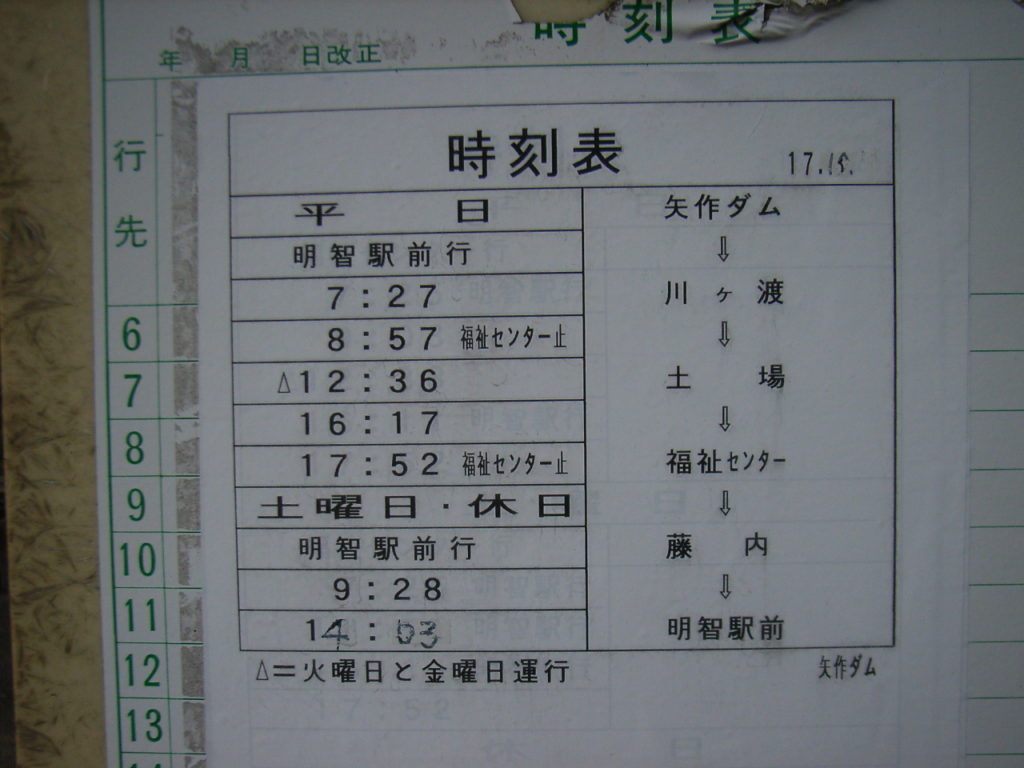 時刻表
年 月 日改正
行先
6
7
8
9
10
11
12
13
時刻表
平日
明智駅前行
7:27
8:57 福祉センター止
△12:36
16:17
17:52 福祉センター止
土曜日・休日
明智駅前行
9:28
14:03
△=火曜日と金曜日運行
矢作ダム
⇩
川ヶ渡
⇩
土場
⇩
福祉センター
⇩
藤内
⇩
明智駅前
矢作ダム